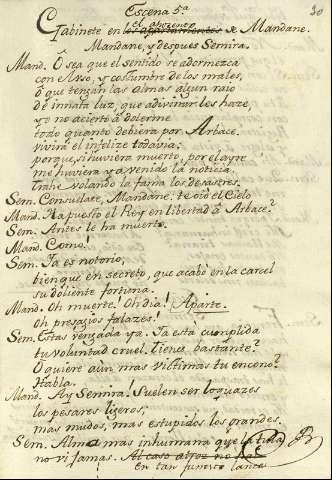 Escena 5ª
20
y el aposento
Gabinete en los apartamentos de Mandane.
Mandane, y despues Semira.
Mand. Ô sea que el sentido se adormezca
con el uso, y costumbre de los males,
ô que tengan las almas algun raio
de innata luz, que adivinar les haze,
yo no acierto à dolerme
todo quanto debiera por Arbace.
vivirà el infelize todavia;
porque, si huviera muerto, por el ayre
me huviera ya venido la noticia.
trahe volando la fama los desastres.
Sem. Consuelate, Mandane, te oiò el Cielo
Mand. Ha puesto el Rey en libertad à Arbace?
Sem. Antes le ha muerto.
Mand. Como!
Sem. Ya es notorio,
bien que en secreto, que acabò en la carcel
su doliente fortuna.
Mand. Oh muerte! Oh dia! Aparte.
Oh presagios falazes!
Sem. Estas vengada ya. Ya està cumplida
tu voluntad cruel. Tienes bastante?
O quiere aun mas victimas tu encono?
Habla.
Mand. Ay Semira! Suelen ser loquazes
los pesares ligeros,
mas mudos, mas estupidos los grandes.
Sem. Alma mas inhumana que la tuia
no vi jamas. Al caso atroz no hai
en tan funesto lance